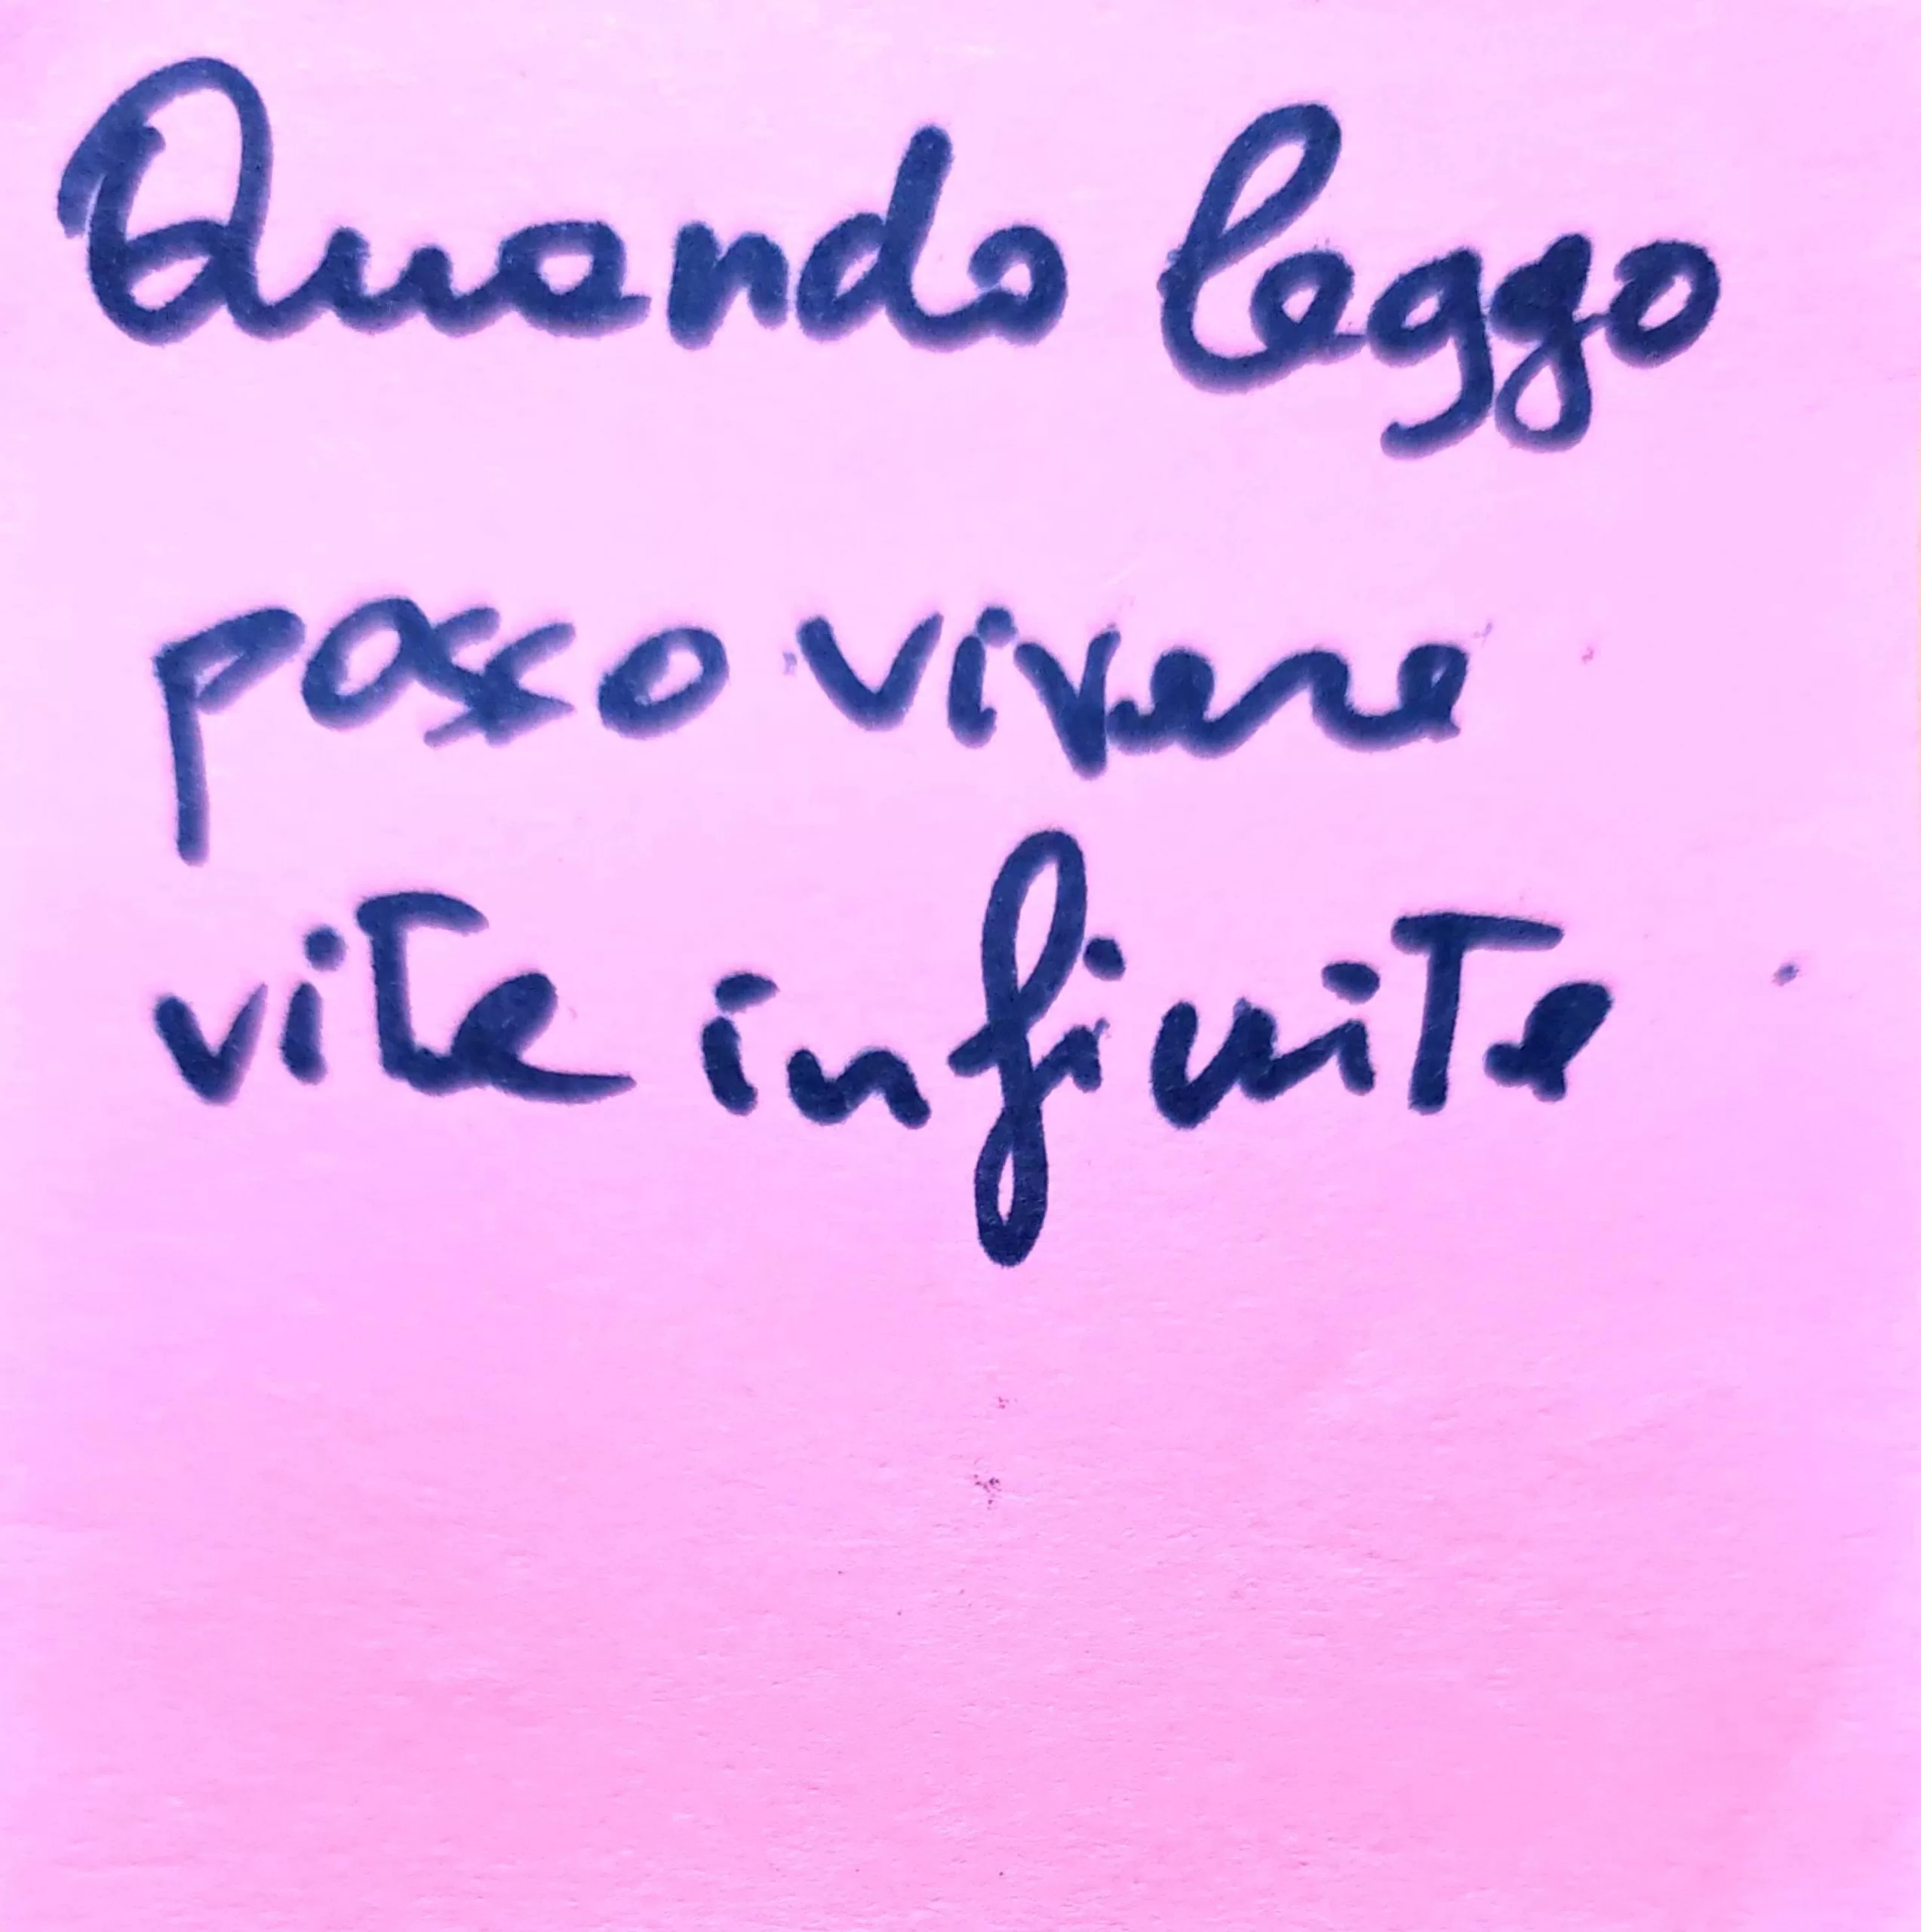 Quando leggo
posso vivere
vite infinite